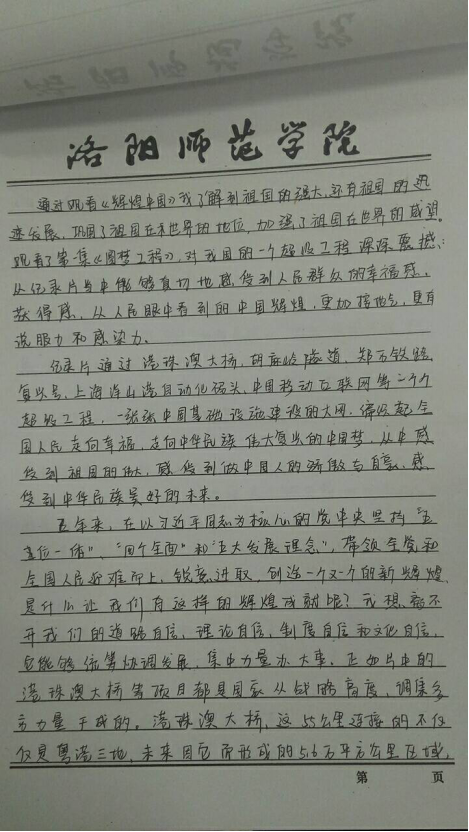 洛阳师范学院
通过观看《辉煌中国》我了解到祖国的强大,还有祖国的迅
速发展,巩固了祖国在本世界的地位,加强了祖国在世界的威望。
观看了第一集《圆梦工程》,对我国的一个超级工程深深震撼,
从纪录片当中能够真切地感受到人民群众的幸福感,
获得感,从人民眼中看到的中国辉煌,更加接地气,更有
说服力和感染力。
纪录片通过港珠澳大桥,胡麻岭隧道,郑万铁路,
复兴号,上海洋山港自动化码头,中国移动互联网等一个个
超级工程,一张张中国基础设施建设的大网,编织起全
国人民走向幸福,走向中华民族伟大复兴的中国梦,从中感
受到祖国的伟大,感受到做中国人的骄傲与自豪,感
受到中华民族美好的未来。
五年来,在以习近平同志为核心的党中央坚持“五
位一体”、“四个全面”和“五大发展理念”,带领全党和
全国人民迎难而上,锐意进取,创造一个又一个的新辉煌,
是什么让我们有这样的辉煌成就呢?我想,离不
开我们的道路自信,理论自信,制度自信和文化自信,
它能够统筹协调发展,集中力量办大事。正如片中的
港珠澳大桥等项目都是国家从战略高度,调集多
方力量干成的。港珠澳大桥,这55公里连接的不仅
仅是粤港三地,未来因它而形成的5.6万平方公里区域,
第 页